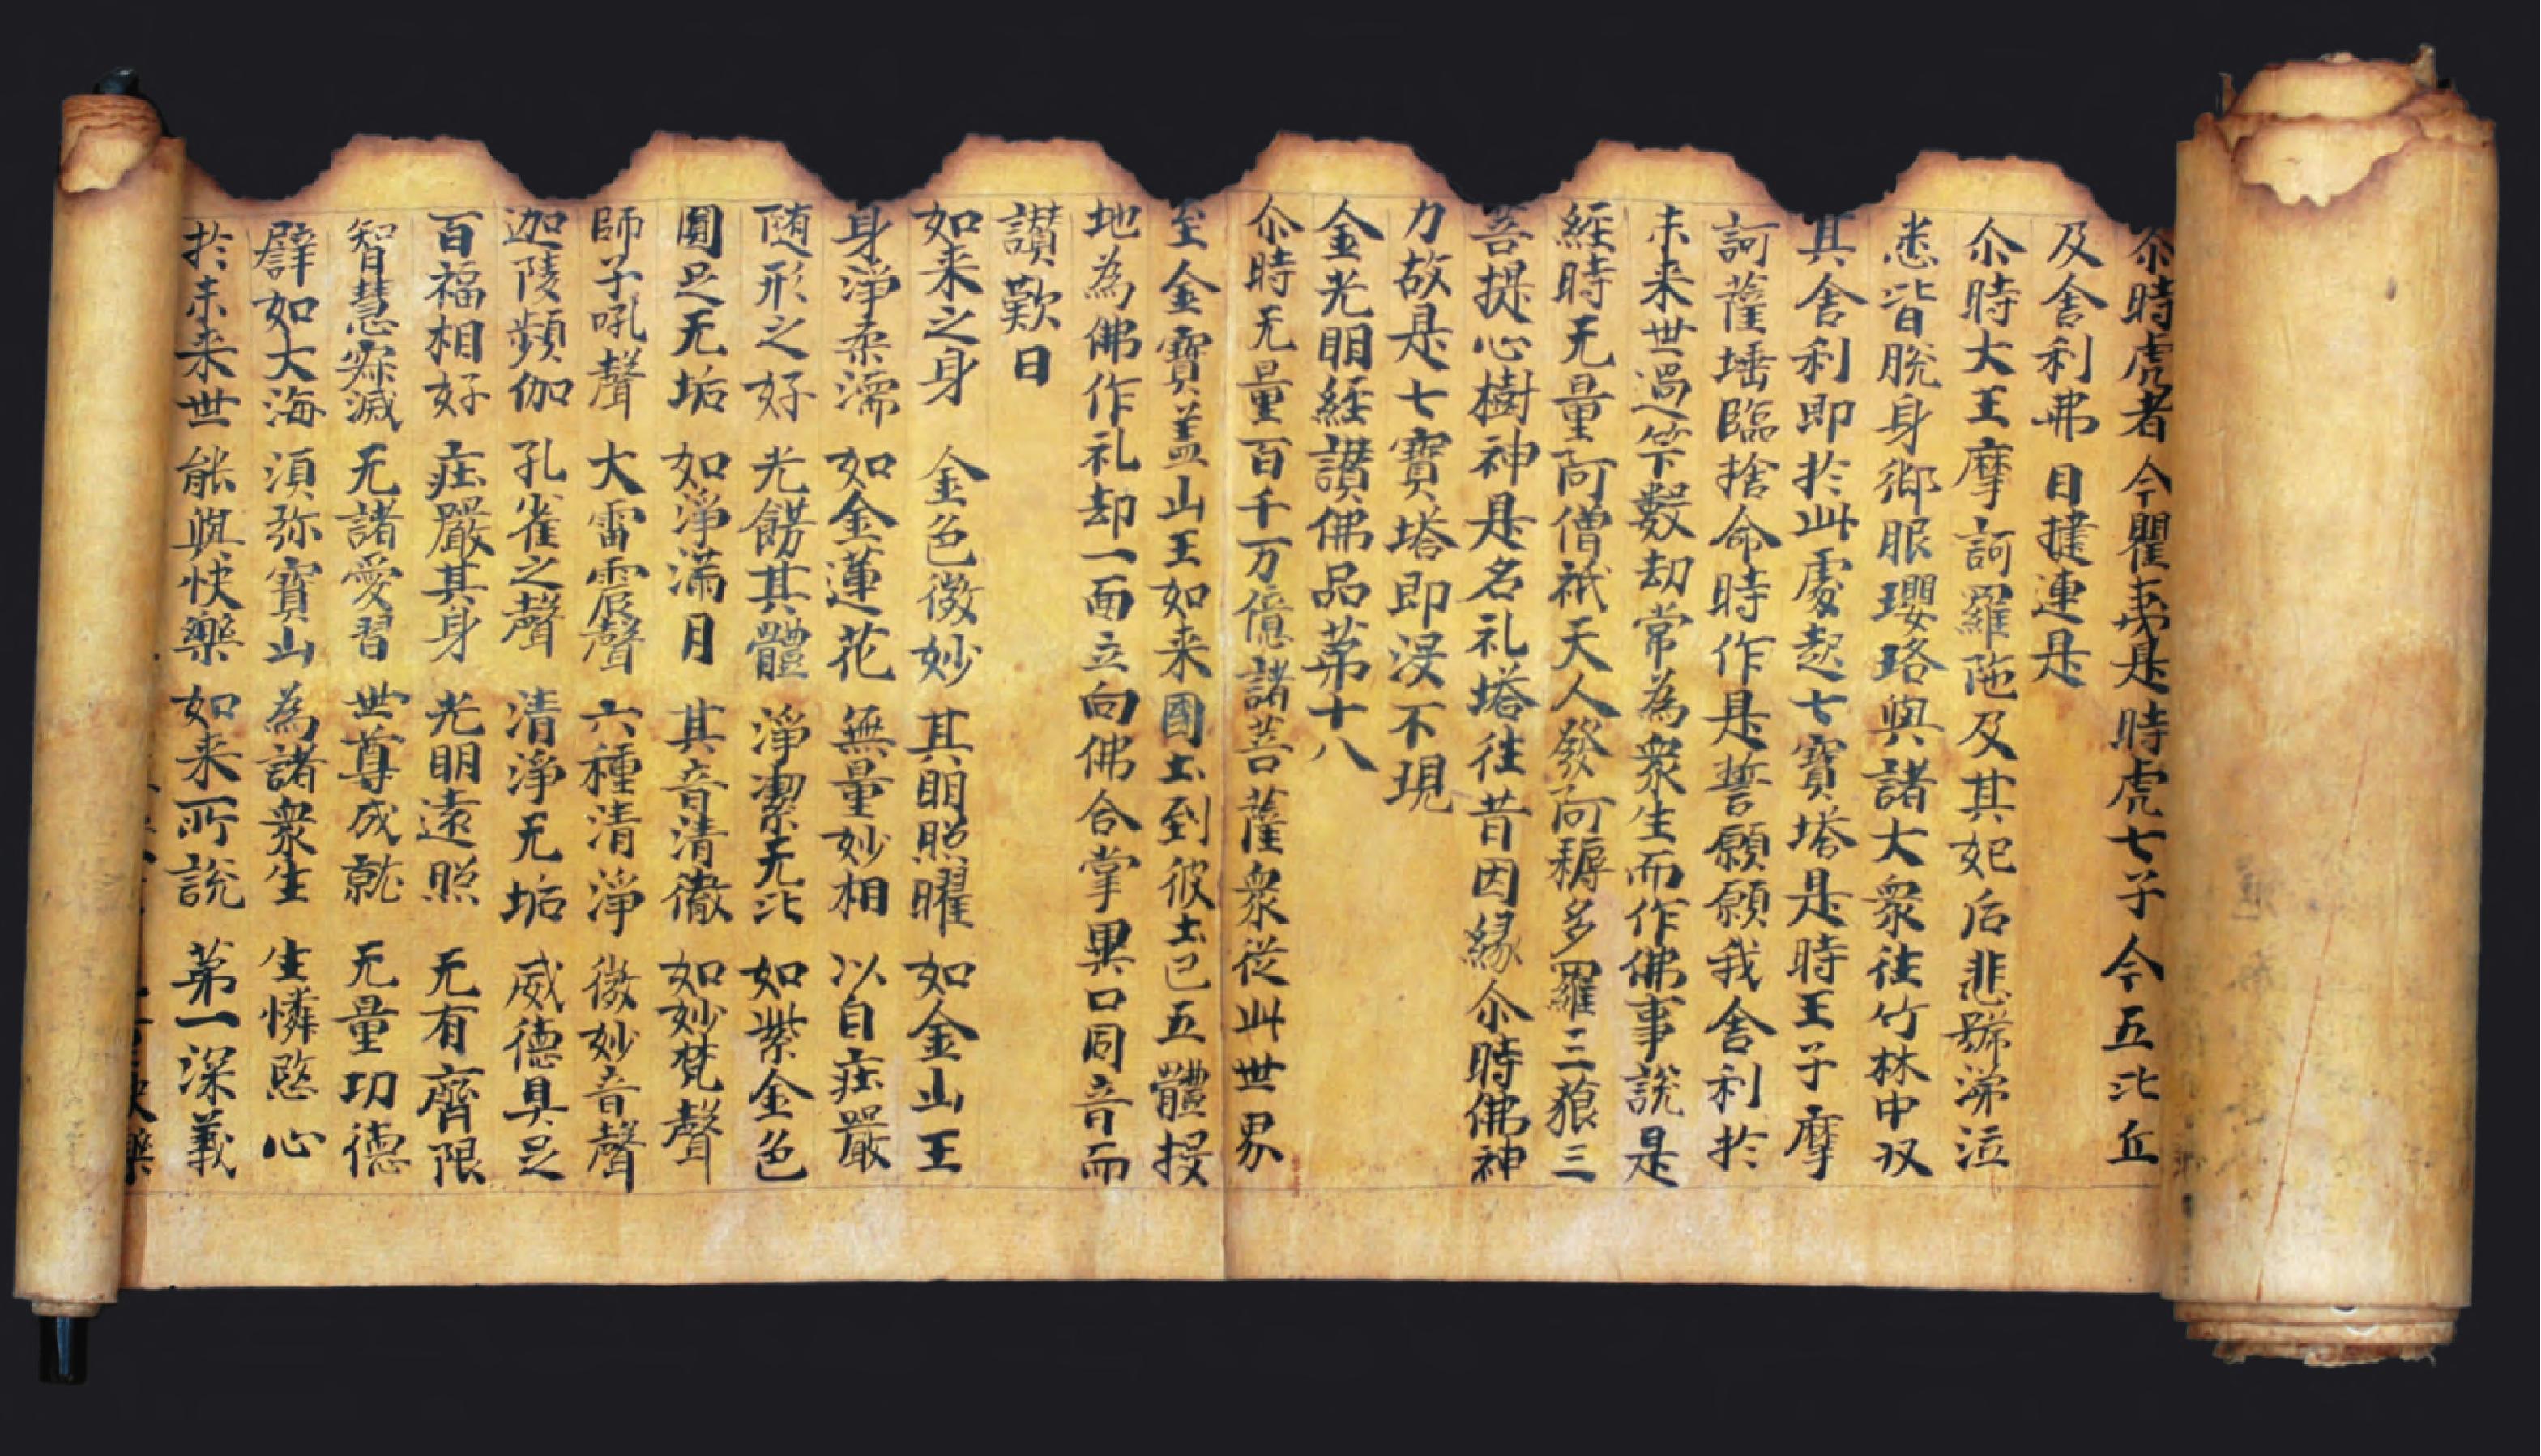 尒時虎者 今瞿夷是 時虎七子 今五比丘
及舍利弗 目揵連是
尒時大王摩訶羅陁及其妃后悲號涕泣
悉皆脫身御服瓔珞與諸大衆往竹林中収
其舍利即於此處起七寶塔是時王子摩
訶薩埵臨捨命時作是誓願願我舍利於
未来世過竿數劫常為衆生而作佛事說是
經時无量阿僧祇天人發阿耨多羅三藐三
菩提心樹神是名礼塔往昔因緣尒時佛神
力故是七寶塔即没不現
金光明經讃佛品苐十八
尒時无量百千万億諸菩薩衆從此世界
至金寶盖山王如来國土到彼土已五體投
地為佛作礼却一面立向佛合掌異口同音而
讃歎曰
如来之身 金色微妙 其明照曜 如金山王
身淨柔濡 如金蓮花 無量妙相 以自莊嚴
随形之好 光餝其體 淨潔无比 如紫金色
圓足无垢 如淨滿月 其音清徹 如妙梵聲
師子吼聲 大雷震聲 六種清淨 微妙音聲
迦陵頻伽 孔雀之聲 清淨无垢 威德具足
百福相好 莊嚴其身 光明遠照 无有齊限
智慧寂滅 无諸愛習 世尊成就 无量功德
譬如大海 須弥寶山 為諸衆生 生憐愍心
於未来世 能與快樂 如来所說 苐一深義
快樂